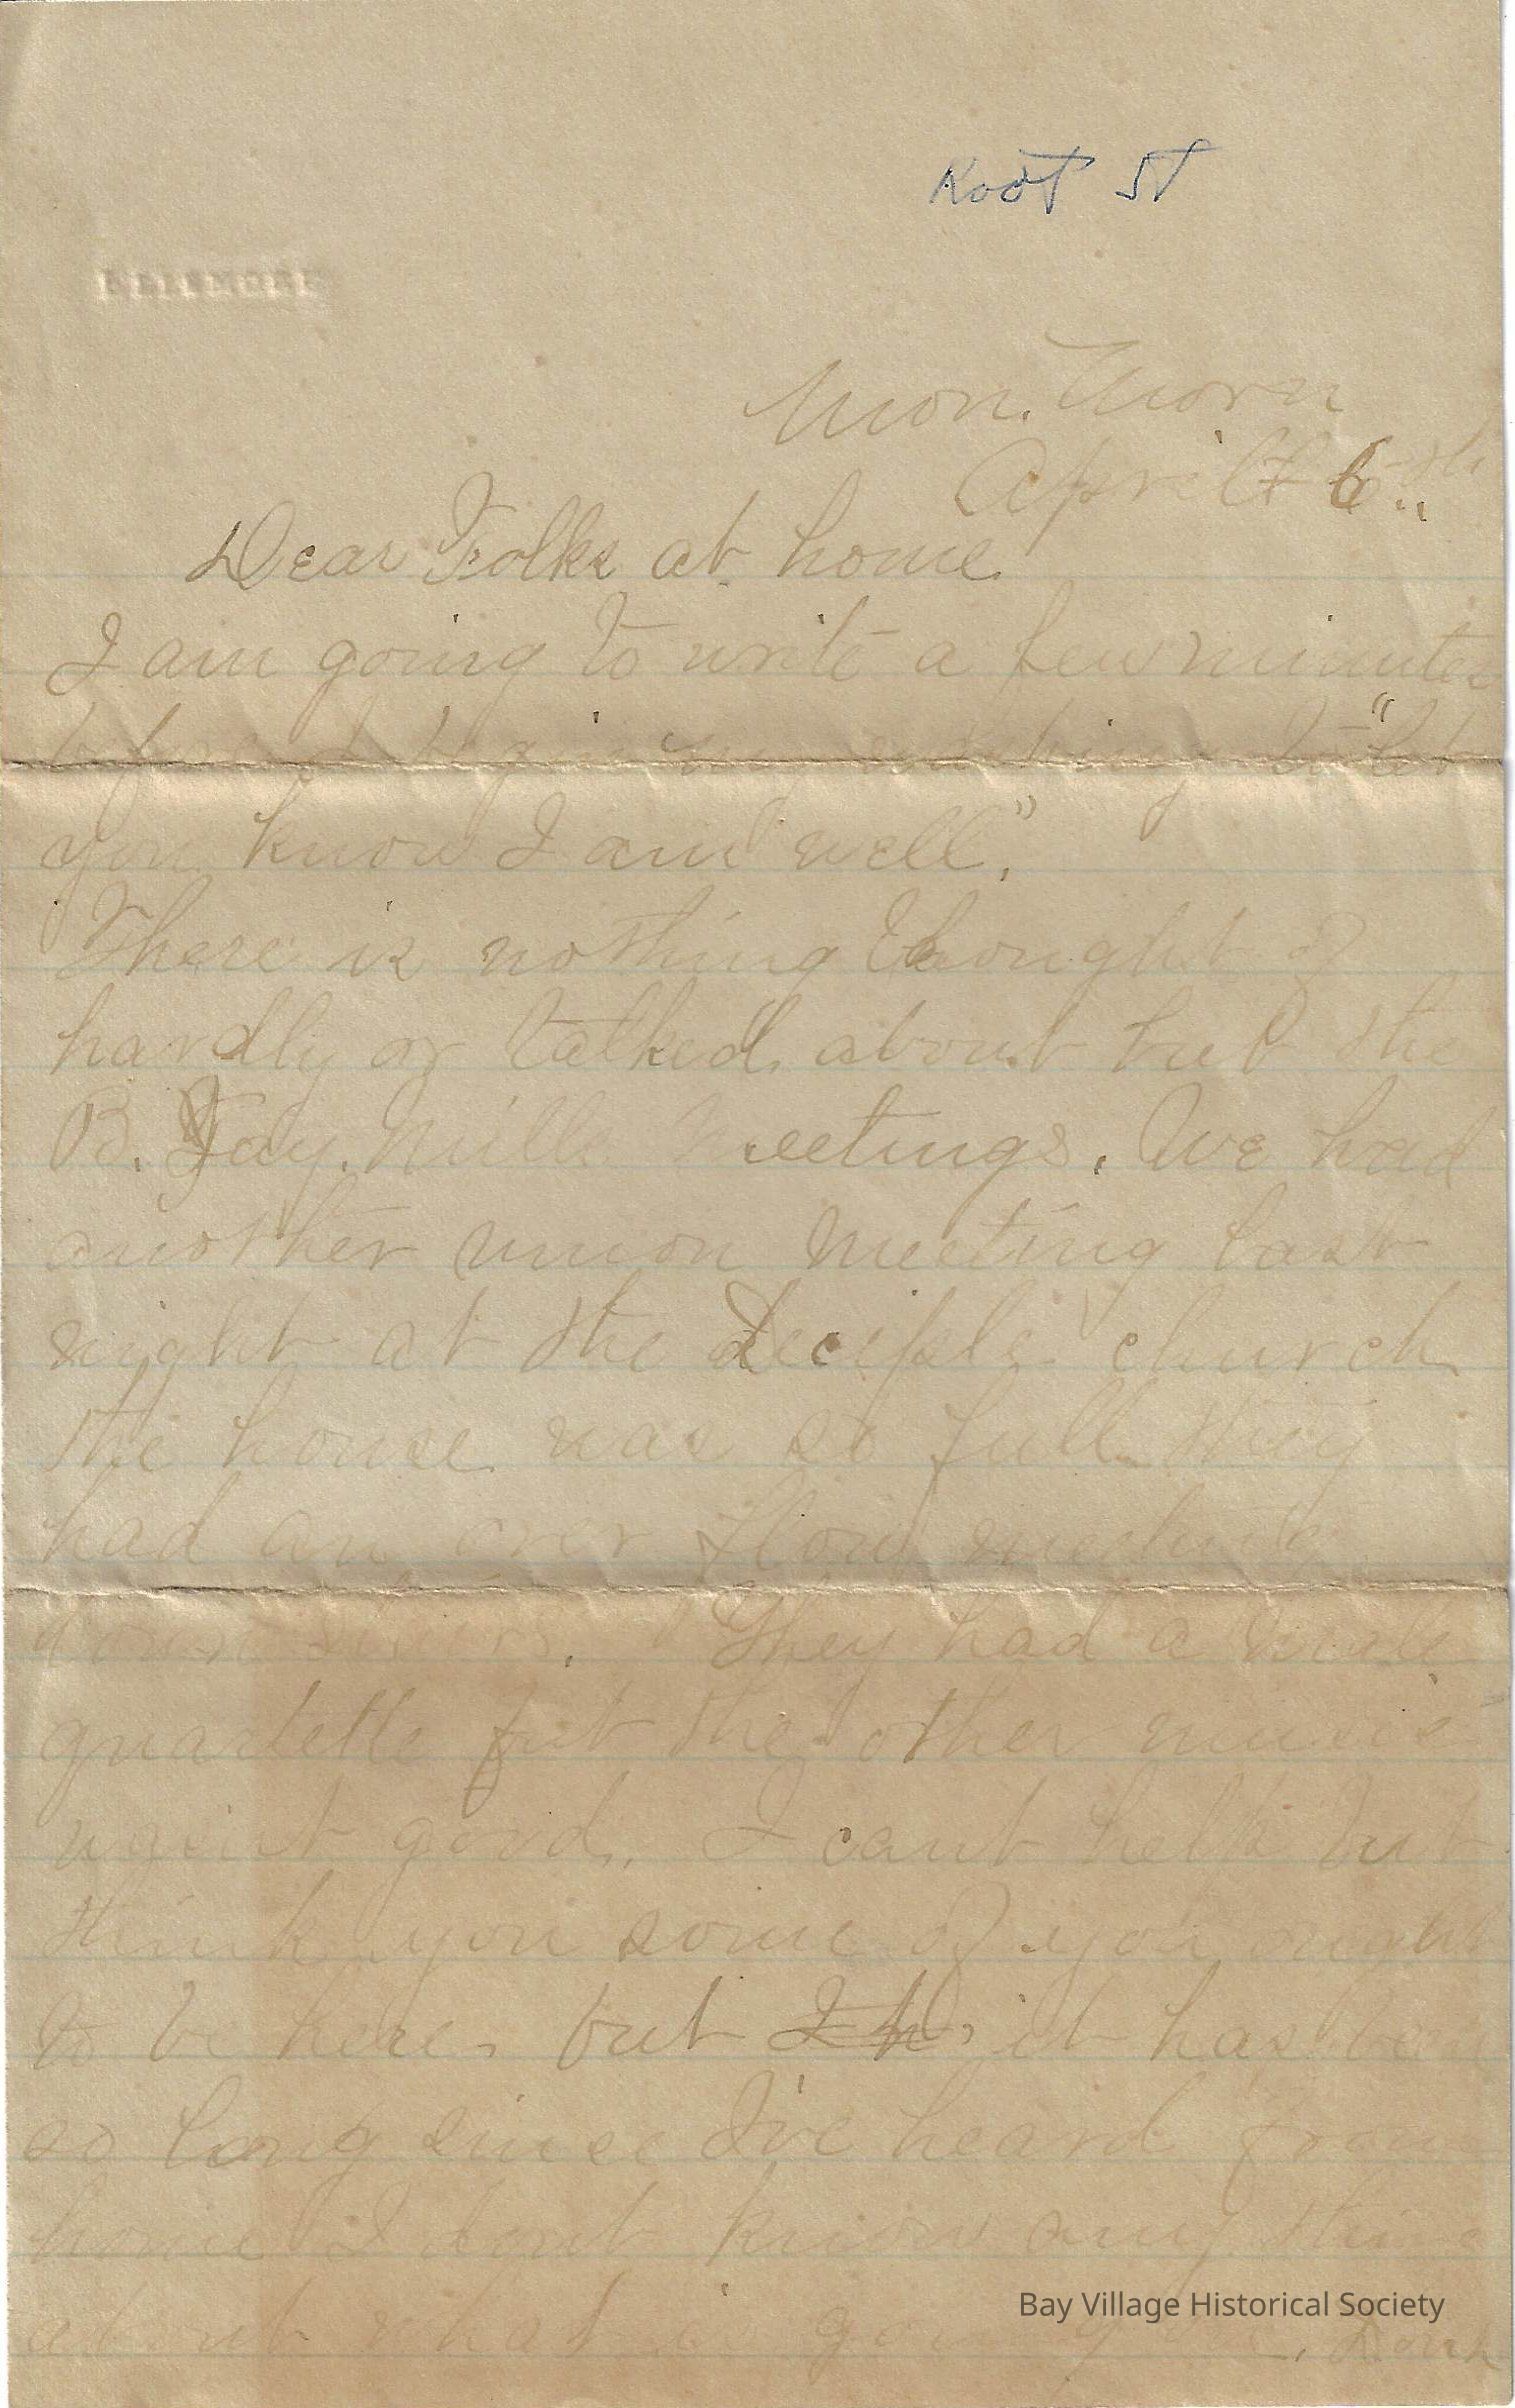 Root ST
Mon. Morn
April 6th
Dear Folks at home
I am going to write a few minutes
before I begin my washing to "let
you know I am well."
There is nothing thought of
hardly or talked about but the
B. Fay. Mills Meetings. We had
another union meeting last
night at the Deciple church
the house was so full they
had an over flow meeting
down stairs. They had a male
quartette but the other music
was'nt good. I cant help but
think you some of you ought
to be here, but it has been
so long since I've heard from
home I dont know any thing
about what is going on.
Bay Village Historical Society